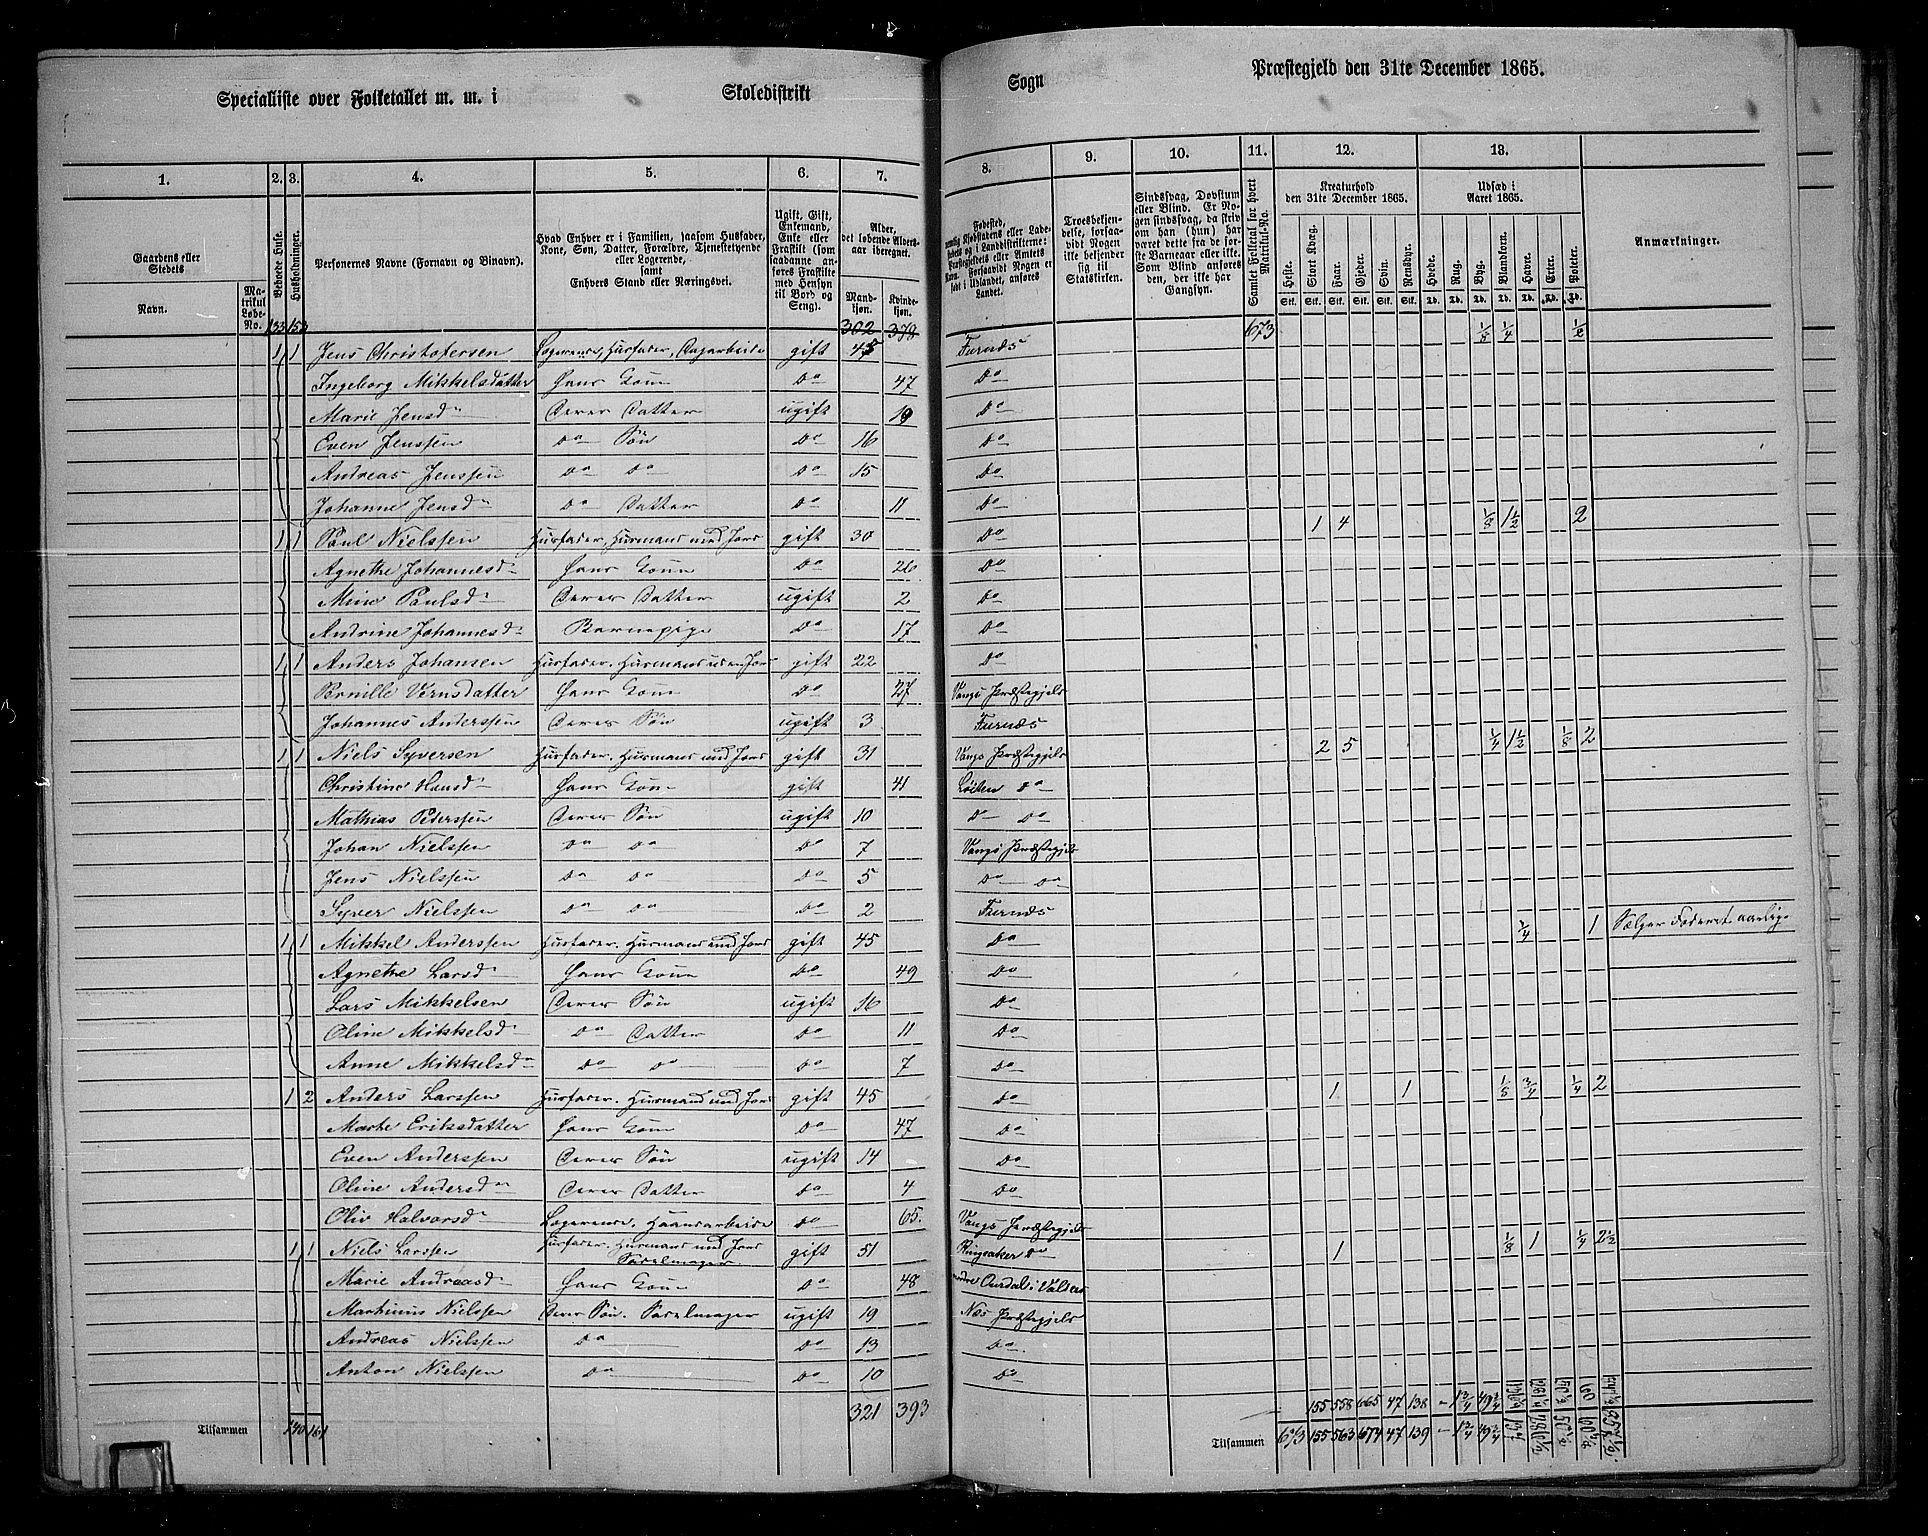 Specialliste over Folketallet m. m. i Skoledistrikt Sogn Præstegjeld den 31te December 1865.
1. 2. 3. 4. 5. 6. 7. 8. 9. 10. 11. 12. 13.
Gaardens eller Stedets
Navn.
Matrikul Løbe-No.
Beboede Huse.
Husholdninger.
Personernes Navne (Fornavn og Binavn).
Hvad Enhver er i Familien, saasom Husfader, Kone, Søn, Datter, Forældre, Tjenestetyende eller Logerende, samt Enhvers Stand eller Næringsvei.
Ugift, Gift, Enkemand, Enke eller Fraskilt (som saadanne anføres Fraskilte med Hensyn til Bord og Seng).
Alder, det løbende Aldersaar iberegnet.
Mandkjøn. Kvindekjøn.
Troesbekjendelse, forsaavidt Nogen ikke bekjender sig til Statskirken.
Sindssvag, Døvstum eller Blind. Er Nogen sindssvag, da skrives om han (hun) har været dette fra de første Barneaar eller ikke. Som Blind anføres den, der ikke har Gangsyn.
Samlet Folketal for hvert Matrikul-No.
Kreaturhold den 31te December 1865.
Heste. Stort Kvæg. Faar. Gjeder. Svin. Rensdyr.
Udsæd i Aaret 1865.
Hvede. Rug. Byg. Blandkorn. Havre. Erter. Poteter.
Anmærkninger.
133 152 302 378 673 1/8 1/4 1/2
1 1 Jens Christofersen Logerende, Husfader, Dagarbeide gift 45 Furnæs
Ingeborg Mikkelsdatter Hans Kone Do 47 Do
Marie Jensd Deres Datter ugift 19 Do
Even Jenssen Do Søn Do 16 Do
Andreas Jenssen Do Do Do 15 Do
Johanne Jensd Do Datter Do 11 Do
1 1 Paul Nielssen Husfader, Husmand med Jord gift 30 Do 1 4 1/8 1 1/2 2
Agnethe Johannesd Hans Kone Do 26 Do
Mine Paulsd Deres Datter ugift 2 Do
Andrine Johannesd Barnepige Do 17 Do
1 1 Anders Johansen Husfader. Husmand uden Jord gift 22 Do
Pernille Vernsdatter Hans Kone Do 27 Vangs Præstegjeld
Johannes Anderssen Deres Søn ugift 3 Furnæs
1 1 Niels Syversen Husfader. Husmand med Jord gift 31 Vangs Præstegjeld 2 5 1/4 1 1/2 1/8 2
Christine Hansd Hans Kone gift 41 Løiten Do
Mathias Pederssen Deres Søn ugift 10 Do Do
Johan Nielssen Do Do Do 7 Vangs Præstegjeld
Jens Nielssen Do Do Do 5 Do Do
Syver Nielssen Do Do Do 2 Furnæs
1 1 Mikkel Anderssen Husfader. Husmand med Jord gift 45 Do 1/4 1 Sælger Foderet aarlig.
Agnethe Larsd Hans Kone Do 49 Do
Lars Mikkelsen Deres Søn ugift 16 Do
Oline Mikkelsd Do Datter Do 11 Do
Anne Mikkelsd Do Do Do 7 Do
1 2 Anders Larssen Husfader. Husmand med Jord gift 45 Do 1 1 1/8 3/4 1/4 2
Marthe Eriksdatter Hans Kone Do 47 Do
Even Anderssen Deres Søn ugift 14 Do
Oline Andersd Deres Datter Do 4 Do
Oliv Halvorsd Logerende. Haandarbeide Do 65. Vangs Præstegjeld
1 1 Niels Larssen Husfader. Husmand med Jord Sadelmager gift 51 Ringsaker Do 1 1/8 1 1/4 2 1/2
Marie Andreasd Hans Kone Do 48 nordre Ourdal i Valders
Martinus Nielssen Deres Søn. Sadelmager ugift 19 Næs Præstegjeld
Andreas Nielssen Do Do 13 Do.
Anton Nielssen Do Do 10 Do
155 558 665 47 138 - 1 3/4 49 3/4
Tilsammen 140 161 321 393
Tilsammen 673 155 563 674 47 139